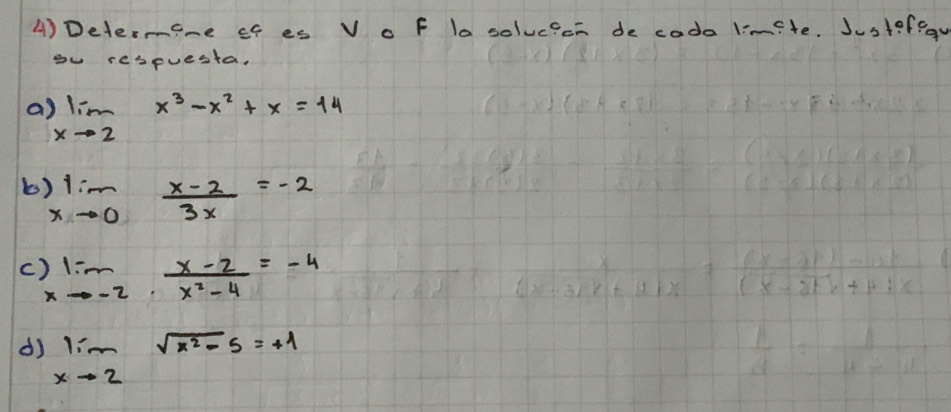 4) Determine si es V o F la solución de cada límite. Justifiqu
su respuesta.
a) lim x³ - x² + x = 14
x → 2
b) lim x - 2 = -2
x → 0 3x
c) lim x - 2 = -4
x → -2 x² - 4
d) lim √x² - 5 = +1
x → 2